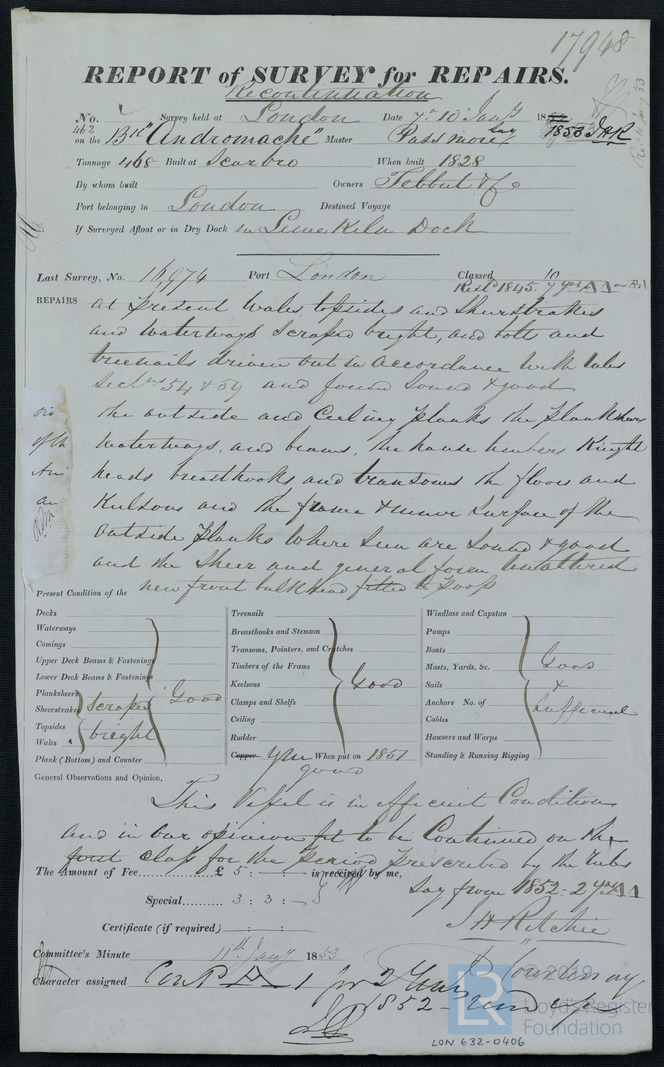 17948
REPORT of SURVEY for REPAIRS.
Recontinuation
No. Survey held at London Date 7th 10 Jany 18
462
on the Bk "Andromache" Master Passmore 1853 JHR
Tonnage 468 Built at Scarbro When built 1828
By whom built Owners Tebbut & Co
Port belonging to London Destined Voyage
If Surveyed Afloat or in Dry Dock in Lime Kiln Dock
Last Survey, No. 16,974 Port London Classed 10
Restd 1845. 7 yrs
REPAIRS at present Wales, topsides and Sheerstrakes
and waterways scraped bright, and bolts and
treenails driven out in accordance with rules
Sectns 54 & 59 and found sound & good
the outside and Ceiling planks the planksheers
Waterways, and beams, the hause timbers Knight
heads breasthooks and transoms the floors and
Keelsons and the frame & inner surface of the
outside planks where seen are sound & good
and the Sheer and general form unaltered
new front bulkhead fitted to Poop
Present Condition of the
Decks
Waterways
Comings
Upper Deck Beams & Fastenings
Lower Deck Beams & Fastenings
Planksheers
Sheerstrakes
Topsides
Wales
scraped bright
Good
Plank (Bottom) and Counter
Treenails
Breasthooks and Stemson
Transoms, Pointers, and Crutches
Timbers of the Frame
Keelsons
Clamps and Shelfs
Ceiling
Rudder
Good
Copper YM When put on 1851
good
Windlass and Capstan
Pumps
Boats
Masts, Yards, &c.
Sails
Anchors No. of
Cables
Hawsers and Warps
Standing & Running Rigging
Good
&
sufficient
General Observations and Opinion,
This Vessel is in efficient Condition
and in our opinion fit to be Continued on the
first class for the period prescribed by the rules
The Amount of Fee £ 5 : — is received by me,
Say from 1852 - 2 yrs
Special 3 : 3 : —
J H Ritchie
Certificate (if required) : :
Committee's Minute 11th Jany 1853
Character assigned Cont A 1 for 2 Years
1852
© 2019
LR
Lloyd's Register
Foundation
LON 632-0406